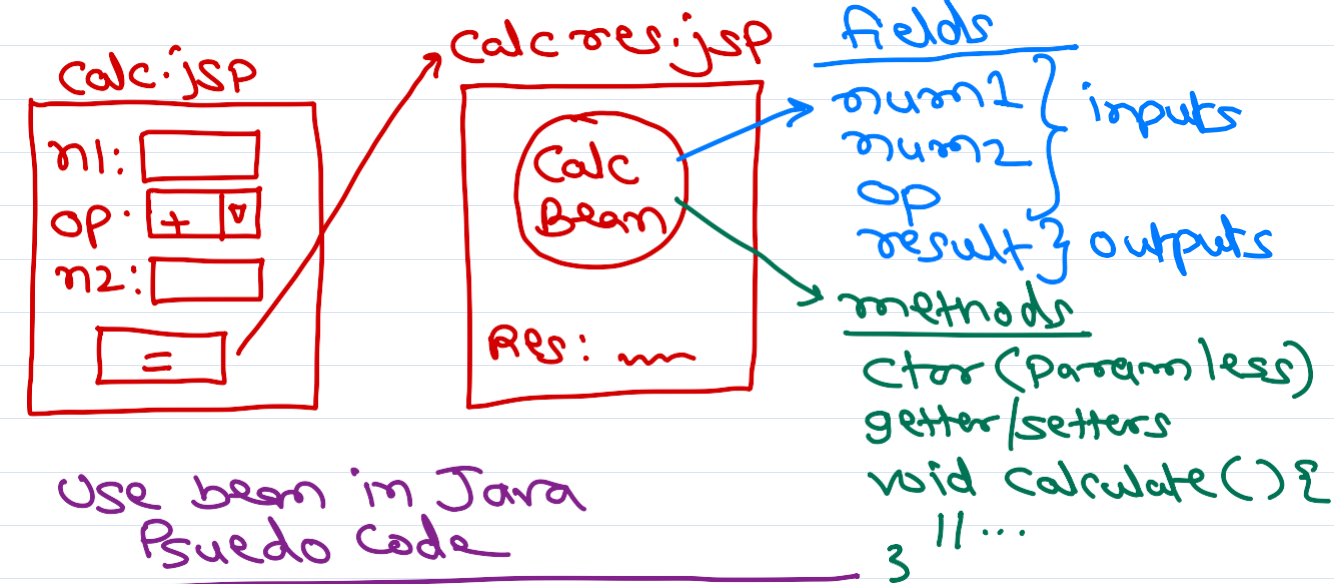 calc.jsp
n1:
op:
+
n2:
=
calcres.jsp
Calc
Bean
Res:
fields
num1
num2
op
} inputs
result } outputs
methods
ctor (paramless)
getter/setters
void calculate() {
//...
}
Use bean in Java
Psuedo Code